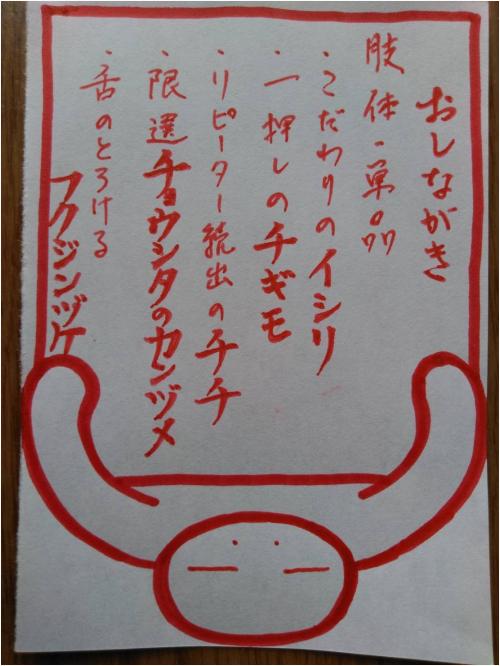 おしながき
肢体・単品
・こだわりのイシリ
・一押しのチギモ
・リピーター続出のチチ
・限選チョウシタのカンヅメ
・舌のとろける
フクジンヅケ